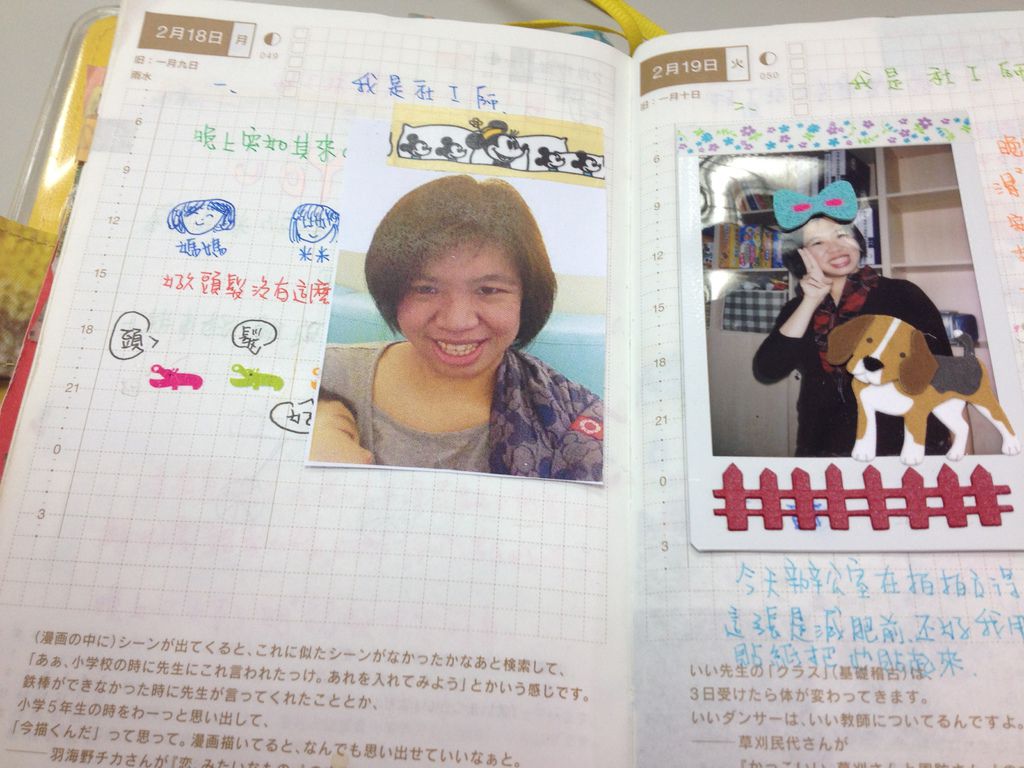 2月18日 月
049
旧:一月九日
雨水
一、 我是社工師
晚上突如其來
媽媽
米米
頭髮沒有這麼
頭
髮
9
12
15
18
21
0
3
(漫画の中に)シーンが出てくると、これに似たシーンがなかったかなあと検索して、
「あぁ、小学校の時に先生にこれ言われたっけ。あれを入れてみよう」とかいう感じです。
鉄棒ができなかった時に先生が言ってくれたこととか、
小学5年生の時をわーっと思い出して、
「今描くんだ」って思って。漫画描いてると、なんでも思い出せていいなぁと。
——羽海野チカさんが
2月19日 火
050
旧:一月十日
二、 我是社工師
6
9
12
15
18
21
0
3
今天辦公室在拍拍立得
這張是減肥前,还好我用
貼紙把 貼起來
いい先生の「クラス」(基礎稽古)は、
3日受けたら体が変わってきます。
いいダンサーは、いい教師についてるんですよ。
——草刈民代さんが